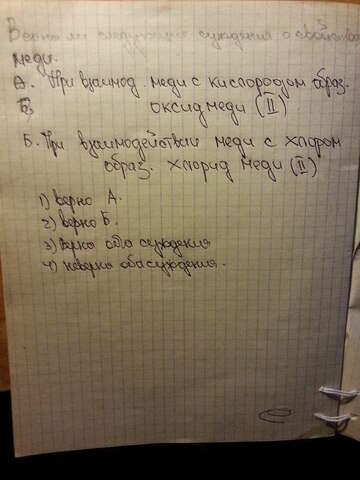 Верно ли следующие суждения о свойствах
меди.
А. При взаимод меди с кислородом образ.
оксид меди (II)
Б. При взаимодействии меди с хлором
образ. хлорид меди (II)
1) верно А.
2) верно Б.
3) верно оба суждения
4) неверно оба суждения.